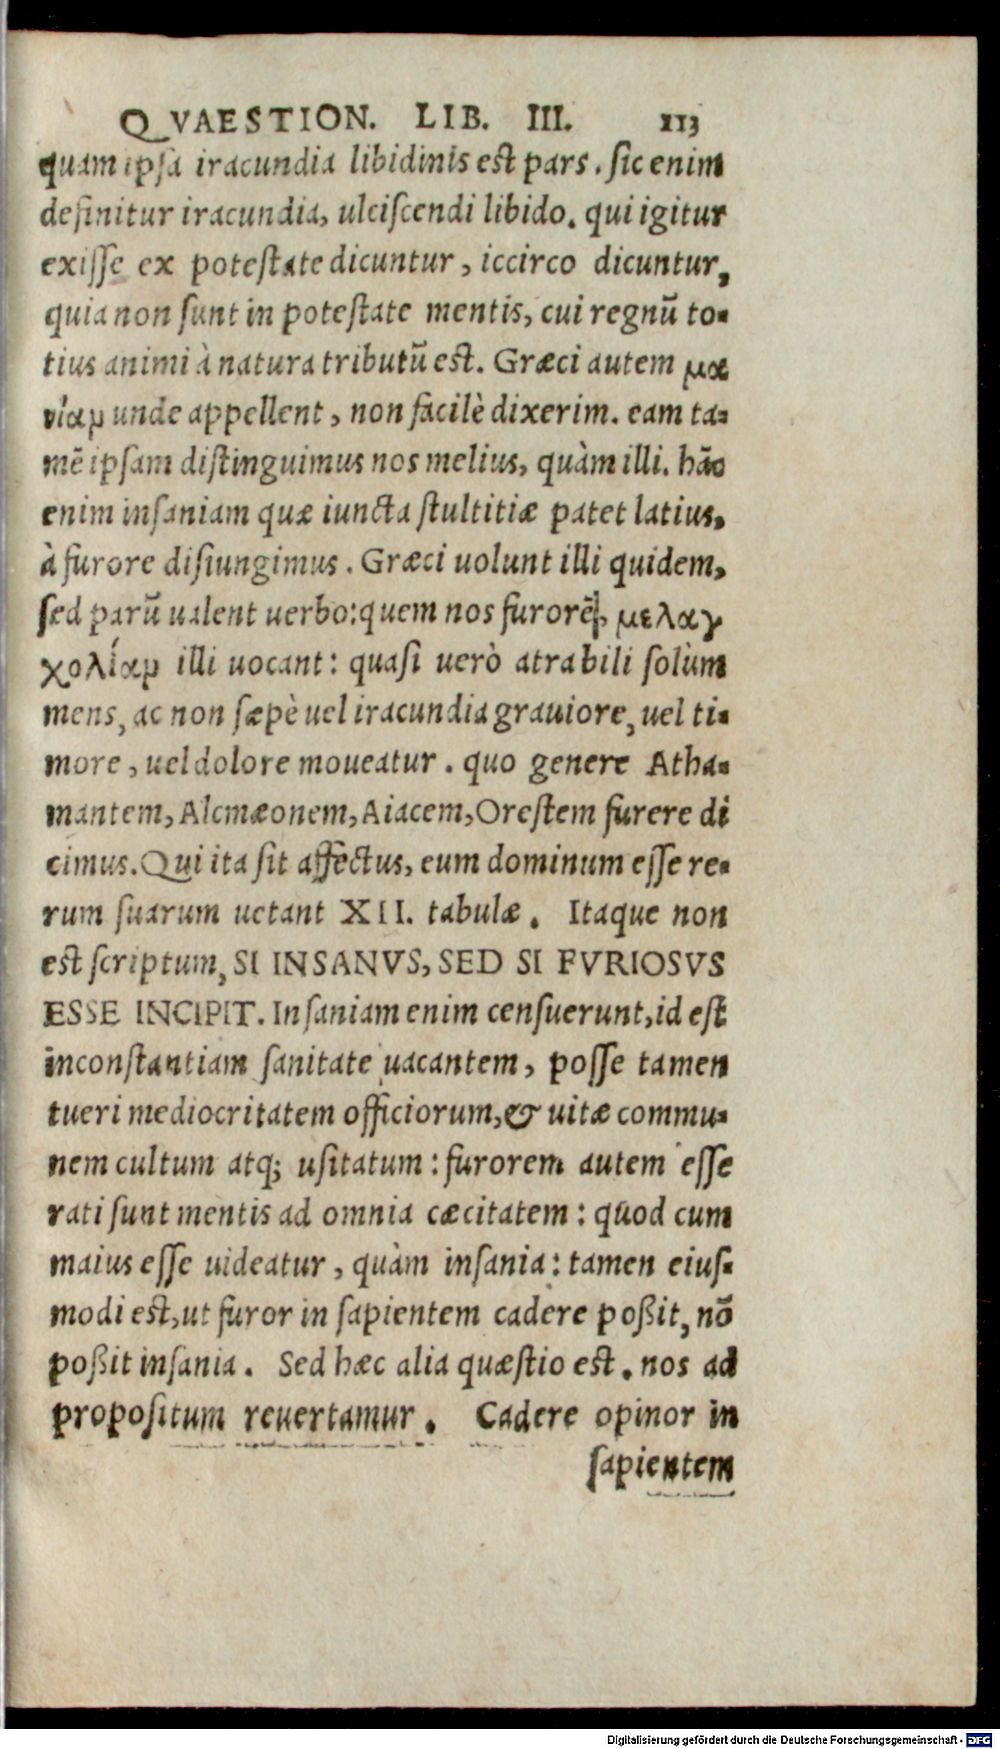 QVAESTION. LIB. III. 113
quam ipsa iracundia libidinis est pars. sic enim
definitur iracundia, ulciscendi libido. qui igitur
exisse ex potestate dicuntur, iccirco dicuntur,
quia non sunt in potestate mentis, cui regnũ to-
tius animi à natura tributũ est. Græci autem μα
νίαμ unde appellent, non facilè dixerim. eam ta-
mẽ ipsam distinguimus nos melius, quàm illi. hãc
enim insaniam quæ iuncta stultitiæ patet latius,
à furore disiungimus. Græci uolunt illi quidem,
sed parũ ualent uerbo: quem nos furorẽ, μελαγ
χολίαμ illi uocant: quasi uerò atrabili solùm
mens, ac non sæpè uel iracundia grauiore, uel ti-
more, uel dolore moueatur. quo genere Atha-
mantem, Alcmæonem, Aiacem, Orestem furere di
cimus. Qui ita sit affectus, eum dominum esse re-
rum suarum uetant XII. tabulæ. Itaque non
est scriptum, SI INSANVS, SED SI FVRIOSVS
ESSE INCIPIT. Insaniam enim censuerunt, id est
inconstantiam sanitate uacantem, posse tamen
tueri mediocritatem officiorum, & uitæ commu-
nem cultum atq; usitatum: furorem autem esse
rati sunt mentis ad omnia cæcitatem: quod cum
maius esse uideatur, quàm insania: tamen eius-
modi est, ut furor in sapientem cadere poßit, nõ
poßit insania. Sed hæc alia quæstio est. nos ad
propositum reuertamur. Cadere opinor in
sapientem
Digitalisierung gefördert durch die Deutsche Forschungsgemeinschaft - DFG